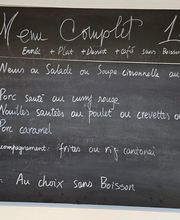 Menu Complet 1
Entrée + Plat + Dessert + café sans Boisson
Nems ou Salade ou Soupe citronnelle au
Porc sauté au curry rouge
Nouilles sautées au poulet ou crevettes ou
Porc caramel
compagnement: frites ou riz cantonai
: Au choix sans Boisson